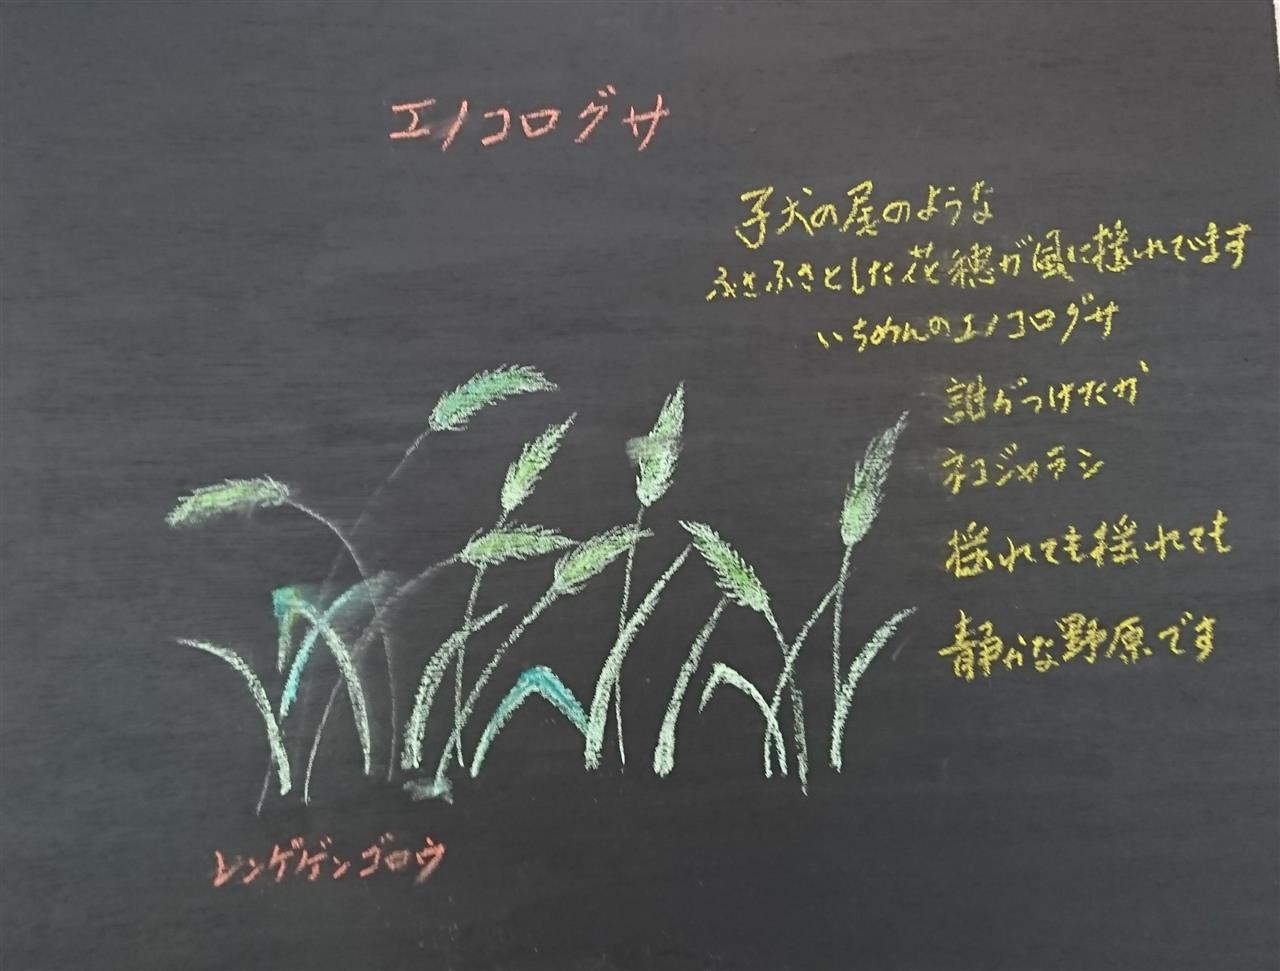 エノコログサ
子犬の尾のような
ふさふさとした花穂が風に揺れています
いちめんのエノコログサ
誰がつけたか
ネコジャラシ
揺れても揺れても
静かな野原です
レンゲゲンゴロウ